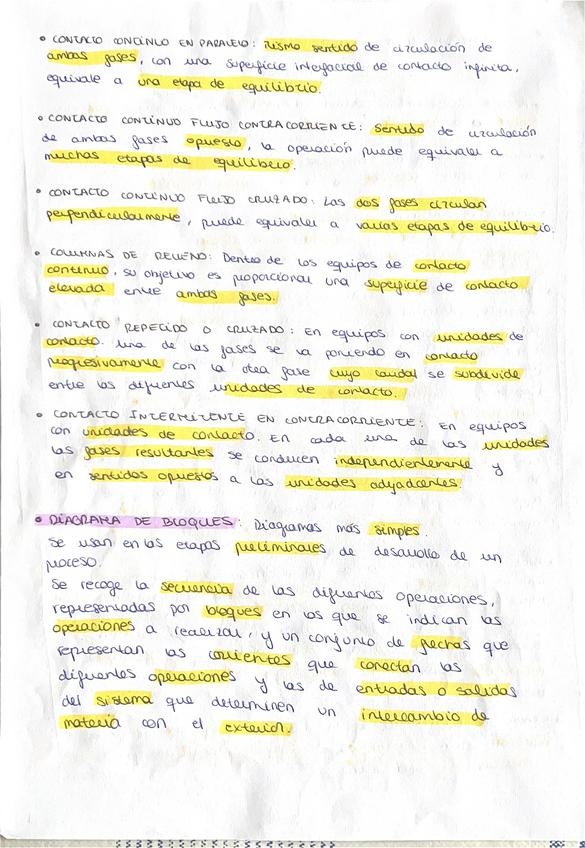 • CONTACTO CONTÍNUO EN PARALELO: Mismo sentido de circulación de
ambas fases, con una superficie interfacial de contacto infinita,
equivale a una etapa de equilibrio.
• CONTACTO CONTÍNUO FLUJO CONTRACORRIENTE: Sentido de circulación
de ambas fases opuesto, la operación puede equivaler a
muchas etapas de equilibrio.
• CONTACTO CONTÍNUO FLUJO CRUZADO: Las dos fases circulan
perpendicularmente, puede equivaler a varias etapas de equilibrio.
• COLUMNAS DE RELLENO: Dentro de los equipos de contacto
contínuo, su objetivo es proporcional una superficie de contacto
elevada entre ambas fases.
• CONTACTO REPETIDO O CRUZADO: En equipos con unidades de
contacto. una de las fases se va poniendo en contacto
progresivamente con la otra fase cuyo caudal se subdivide
entre las diferentes unidades de contacto.
• CONTACTO INTERMITENTE EN CONTRACORRIENTE: En equipos
con unidades de contacto. En cada una de las unidades
las fases resultantes se conducen independientemente y
en sentidos opuestos a las unidades adyacentes.
• DIAGRAMA DE BLOQUES: Diagramas más simples.
Se usan en las etapas preliminales de desarrollo de un
proceso.
Se recoge la secuencia de las diferentes operaciones,
representadas por bloques en los que se indican las
operaciones a realizar, y un conjunto de flechas que
representan las corrientes que conectan las
diferentes operaciones y las de entradas o salidas
del sistema que determinen un intercambio de
materia con el exterior.